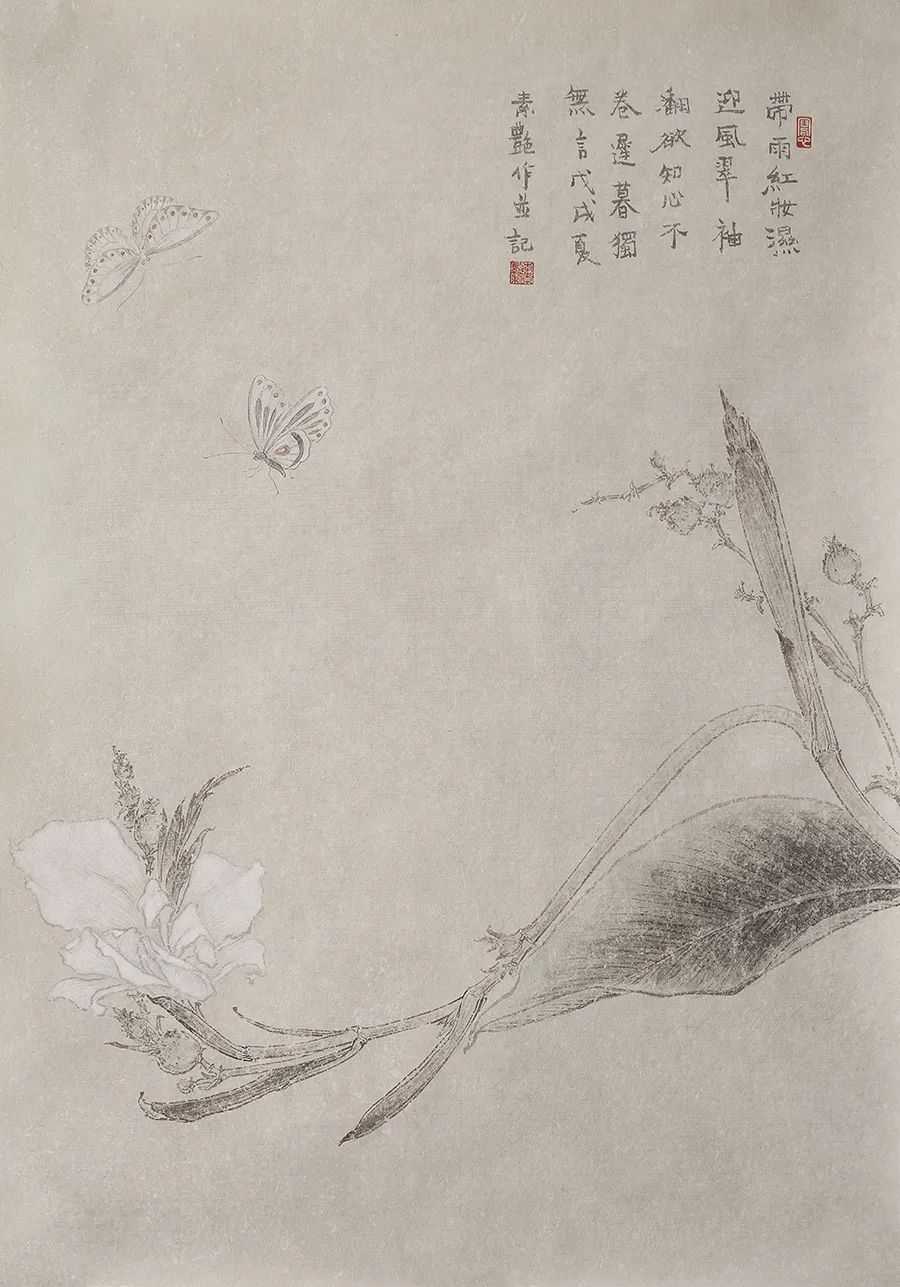 帶雨紅妝濕
迎風翠袖
翻欲知心不
卷遲暮獨
無言戊戌夏
素艷作並記